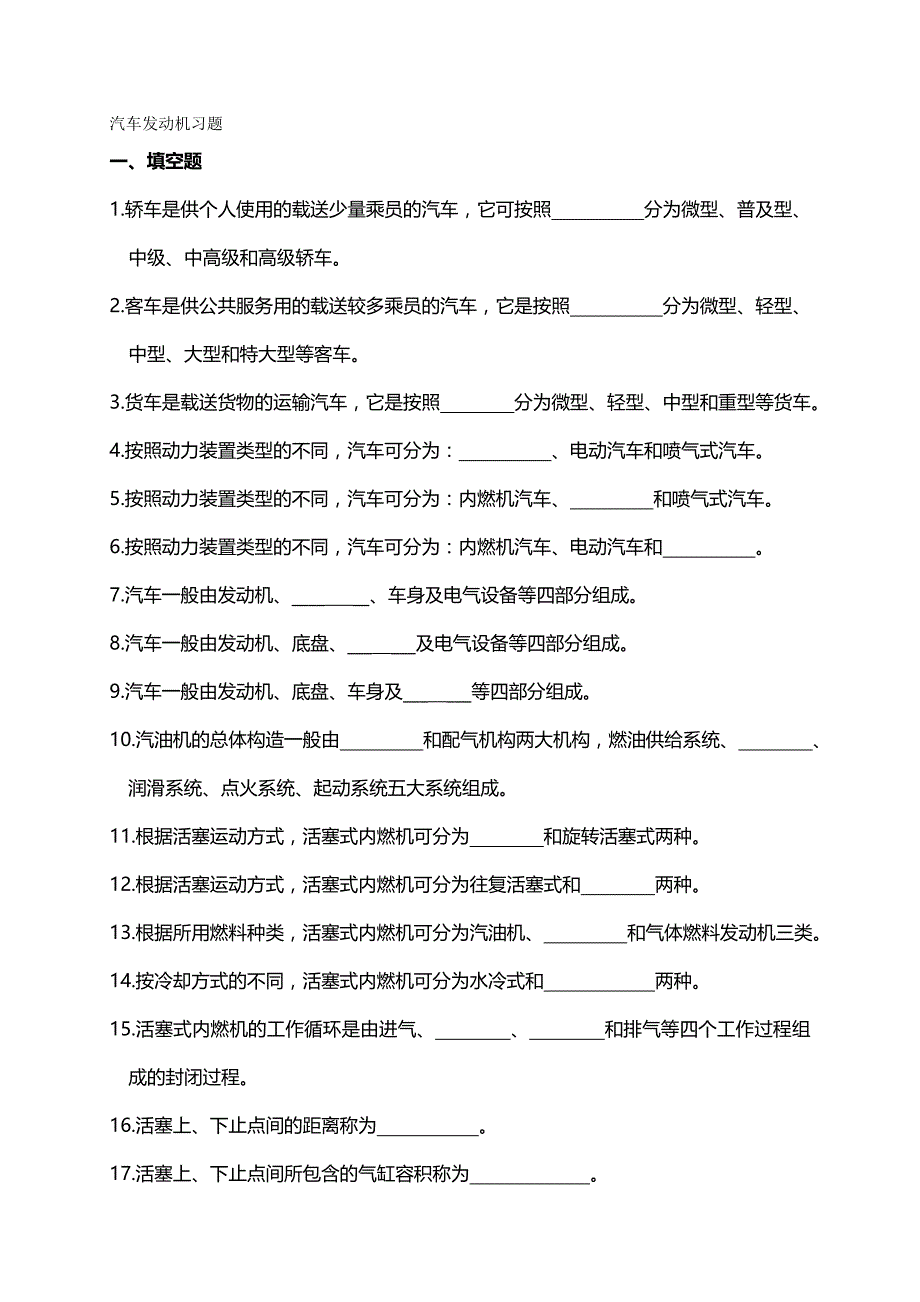 汽车发动机习题
一、填空题
1.轿车是供个人使用的载送少量乘员的汽车，它可按照__________分为微型、普及型、
中级、中高级和高级轿车。
2.客车是供公共服务用的载送较多乘员的汽车，它是按照__________分为微型、轻型、
中型、大型和特大型等客车。
3.货车是载送货物的运输汽车，它是按照________分为微型、轻型、中型和重型等货车。
4.按照动力装置类型的不同，汽车可分为：__________、电动汽车和喷气式汽车。
5.按照动力装置类型的不同，汽车可分为：内燃机汽车、_________和喷气式汽车。
6.按照动力装置类型的不同，汽车可分为：内燃机汽车、电动汽车和__________。
7.汽车一般由发动机、________、车身及电气设备等四部分组成。
8.汽车一般由发动机、底盘、_______及电气设备等四部分组成。
9.汽车一般由发动机、底盘、车身及_______等四部分组成。
10.汽油机的总体构造一般由_________和配气机构两大机构，燃油供给系统、________、
润滑系统、点火系统、起动系统五大系统组成。
11.根据活塞运动方式，活塞式内燃机可分为________和旋转活塞式两种。
12.根据活塞运动方式，活塞式内燃机可分为往复活塞式和________两种。
13.根据所用燃料种类，活塞式内燃机可分为汽油机、_________和气体燃料发动机三类。
14.按冷却方式的不同，活塞式内燃机可分为水冷式和____________两种。
15.活塞式内燃机的工作循环是由进气、________、________和排气等四个工作过程组
成的封闭过程。
16.活塞上、下止点间的距离称为___________。
17.活塞上、下止点间所包含的气缸容积称为_____________。